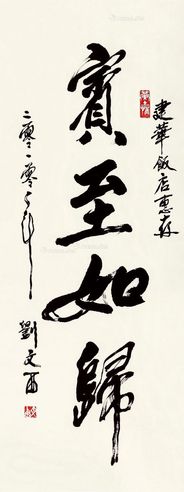 建華飯店惠存
賓至如歸
二零一零年
劉文西